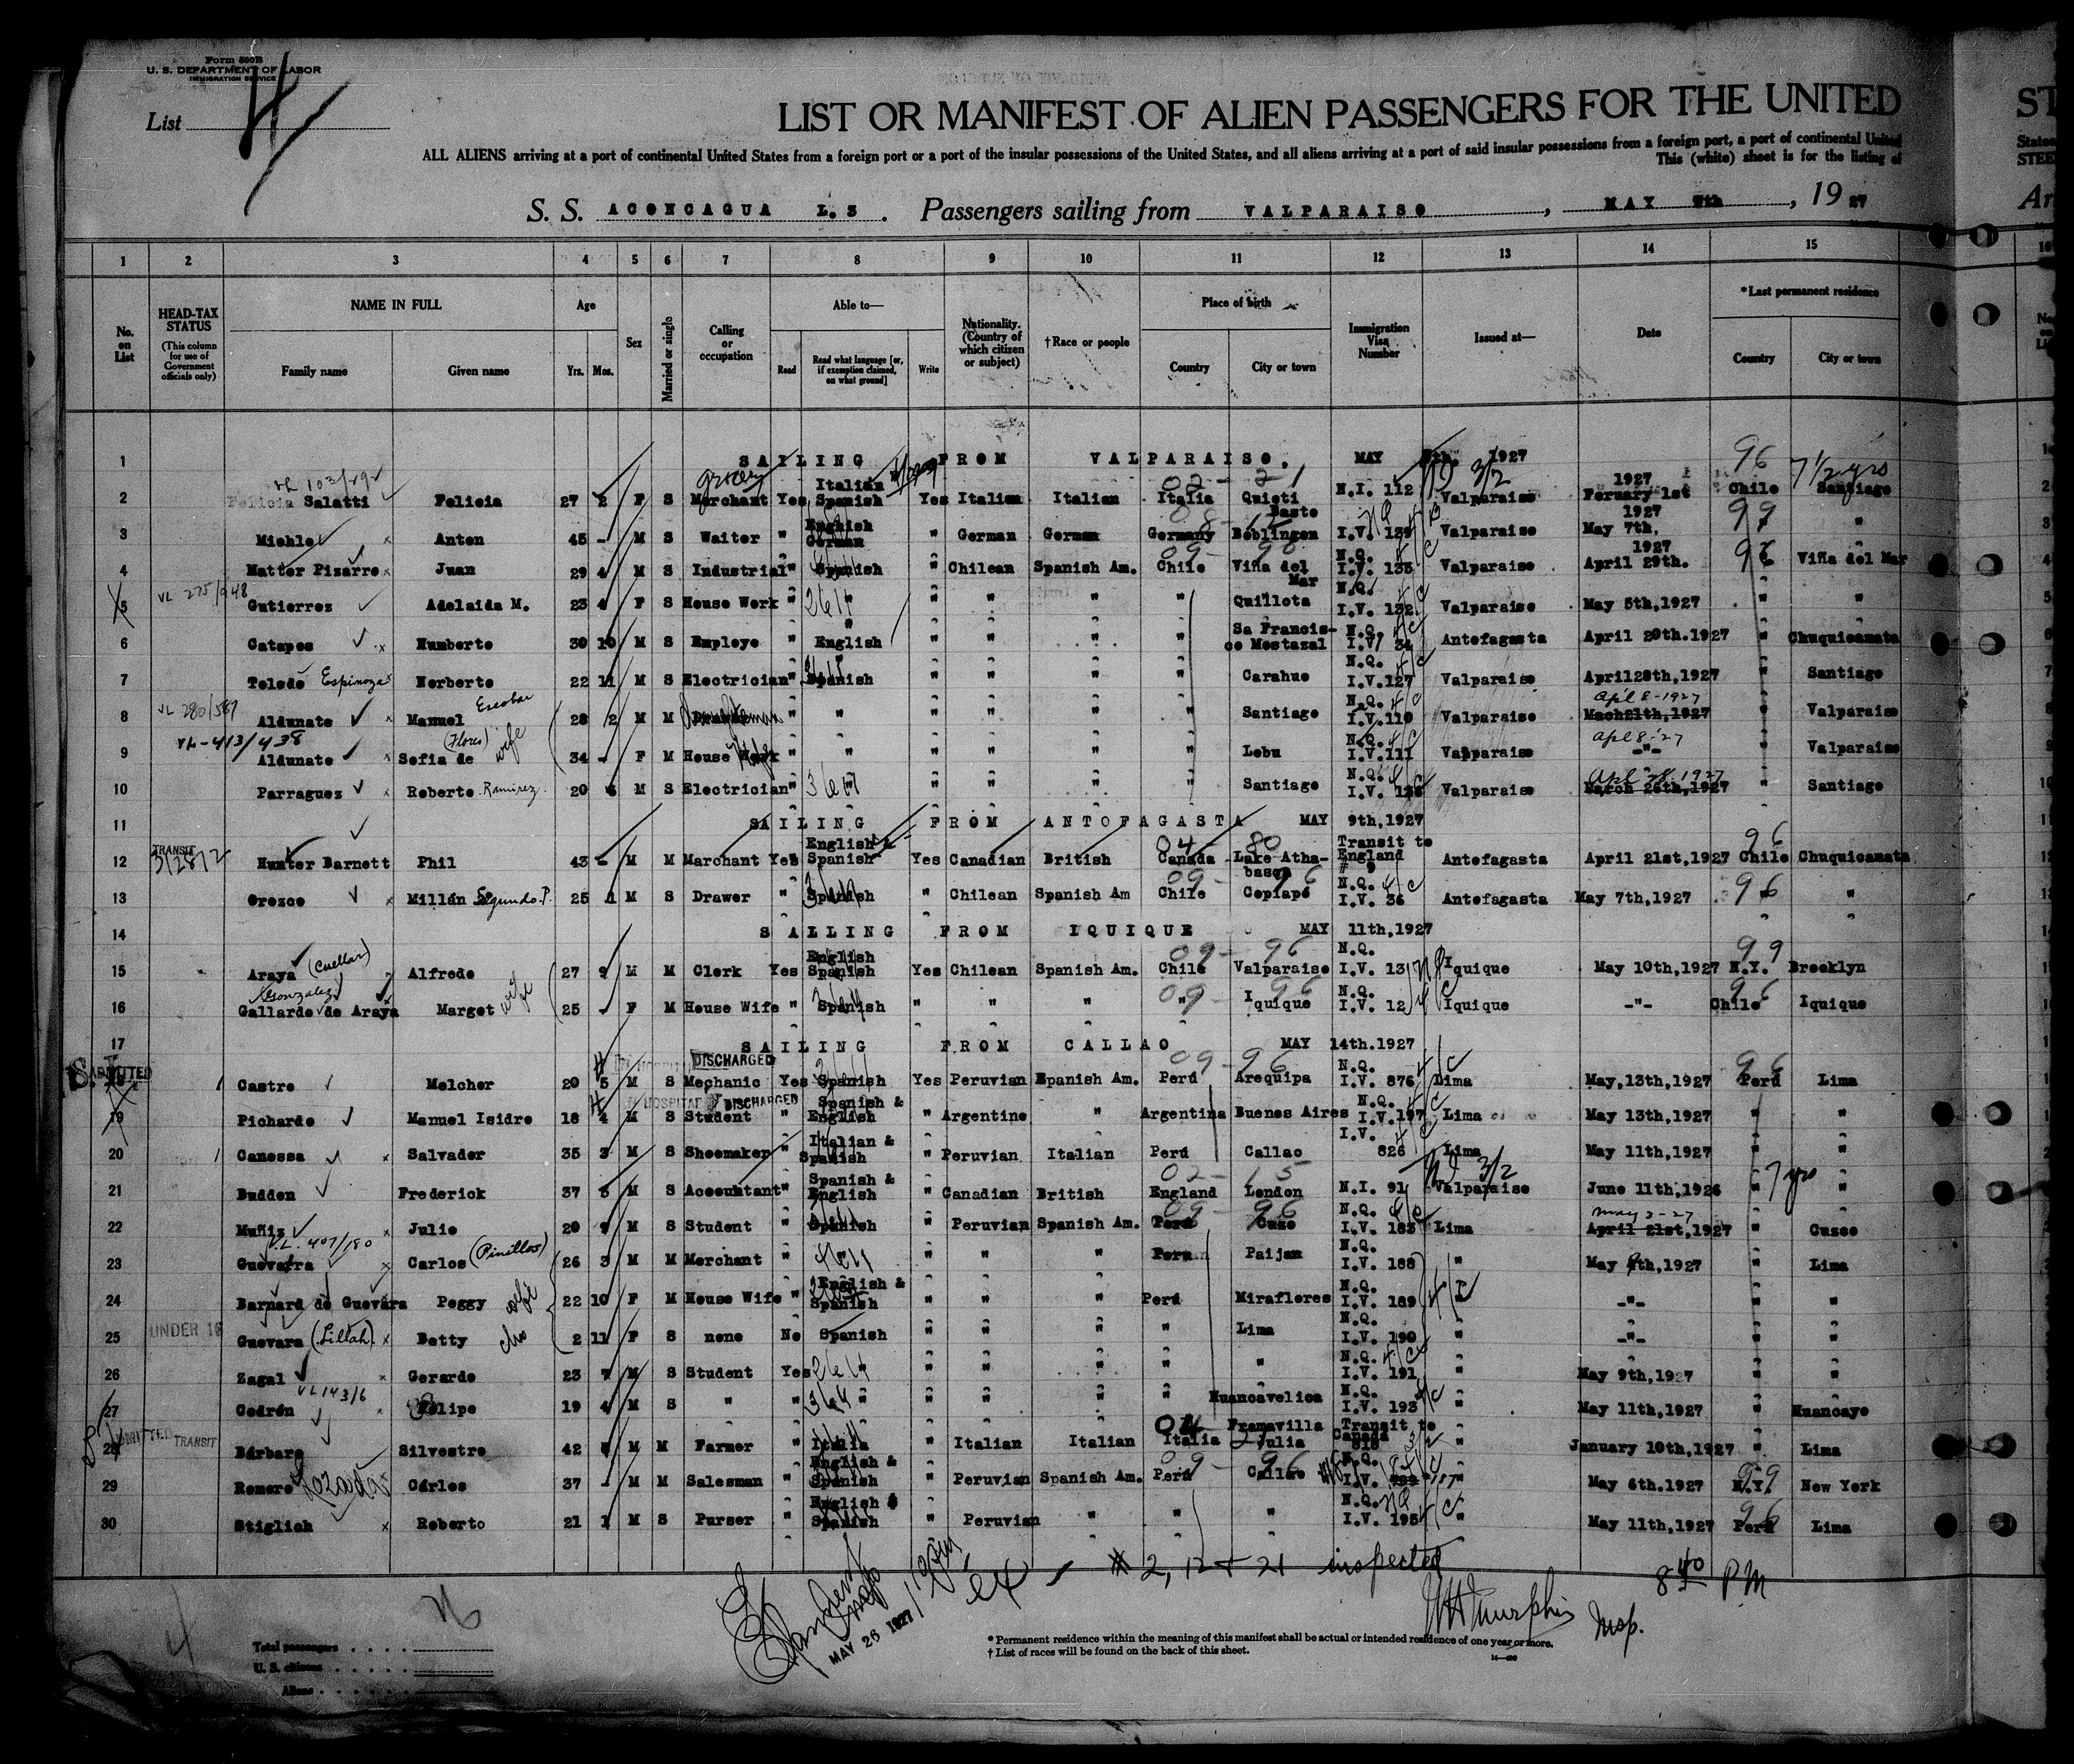 Form 500B
U. S. DEPARTMENT OF LABOR
IMMIGRATION SERVICE
List 4
LIST OR MANIFEST OF ALIEN PASSENGERS FOR THE UNITED
ALL ALIENS arriving at a port of continental United States from a foreign port or a port of the insular possessions of the United States, and all aliens arriving at a port of said insular possessions from a foreign port, a port of continental United
This (white) sheet is for the listing of
S. S. ACONCAGUA L. 3. Passengers sailing from VALPARAISO, MAY 7th, 19 27
1 2 3 4 5 6 7 8 9 10 11 12 13 14 15
No. on List
HEAD-TAX STATUS (This column for use of Government officials only)
NAME IN FULL Family name Given name
Age Yrs. Mos.
Sex
Married or single
Calling or occupation
Able to— Read Read what language [or, if exemption claimed, on what ground] Write
Nationality. (Country of which citizen or subject)
† Race or people
Place of birth Country City or town
Immigration Visa Number
Issued at—
Date
* Last permanent residence Country City or town
1 SAILING FROM VALPARAISO, MAY 1927 96
2 Salatti Felicia 27 2 F S Merchant Yes Italian Spanish Yes Italian Italian Italia Quieti N.I. 112 Valparaiso 1927 Feruary 1st Chile Santiago 7 1/2 yrs
3 Miehle Anton 45 - M S Waiter " English German " German German Germany Boblingen I.V. Valparaiso 1927 May 7th, "
4 Matter Pizarro Juan 29 4 M S Industrial " Spanish " Chilean Spanish Am. Chile Viña del Mar N.Q. I.V. 135 Valparaiso 1927 April 29th. Viña del Mar
5 Gutierrez Adelaida M. 23 4 F S House Work " " " " " Quillota N.Q. I.V. 132 Valparaiso May 5th, 1927 " "
6 Catapos Humberto 30 10 M S Employe " English " " " " Sa Francis-co Mostazal N.Q. I.V. 34 Antofagasta April 20th.1927 " Chuquicamata
7 Toledo Espinoza Norberto 22 11 M S Electrician " Spanish " " " " Carahue N.Q. I.V.127 Valparaiso April28th,1927 " Santiago
8 VL 280/587 Aldunate Manuel Escobar 28 2 M M " " " " " " Santiago N.Q. I.V.110 Valparaiso Apl 8-1927 Mach21th,1927 " Valparaiso
9 VL-413/438 Aldunate Sofia de (Flores) wife 34 - F M House Work " " " " " " Lebu N.Q. I.V.111 Vapparaiso Apl 8-27 -"- " Valparaiso
10 Parraguez Roberto Ramirez 20 6 M S Electrician " " " " " " Santiago N.Q. I.V. Valparaiso Apl 28.1927 March 26th,1927 " Santiago
11 SAILING FROM ANTOFAGASTA MAY 9th,1927
12 TRANSIT Hunter Barnett Phil 43 - M M Marchant Yes English Spanish Yes Canadian British Canada Lake Atha-basca Transit to England # 9 Antofagasta April 21st,1927 Chile Chuquicamata
13 Orozco Millán Segundo P. 25 1 M S Drawer " Spanish " Chilean Spanish Am Chile Copiapó N.Q. I.V. 36 Antofagasta May 7th,1927 96 "
14 SAILING FROM IQUIQUE MAY 11th,1927
15 Araya (Cuellar) Alfredo 27 9 M M Clerk Yes English Spanish Yes Chilean Spanish Am. Chile Valparaiso N.Q. I.V. 13 Iquique May 10th,1927 N.Y. Brooklyn
16 (Gonzalez) Gallardo de Araya Margot wife 25 - F M House Wife " Spanish " " " " Iquique N.Q. I.V. 12 Iquique -"- Chile Iquique
17 SAILING FROM CALLAO MAY 14th.1927
ADMITTED DISCHARGED
18 Castro Melcher 20 5 M S Mechanic Yes Spanish Yes Peruvian Spanish Am. Perú Arequipa N.Q. I.V. 876 Lima May,13th,1927 Perú Lima
IN HOSPITAL DISCHARGED
19 Pichardo Manuel Isidro 18 4 M S Student " Spanish & English " Argentine " Argentina Buenos Aires N.Q. I.V.197 Lima May 13th,1927 " "
20 Canessa Salvador 35 3 M S Shoemaker " Italian & Spanish " Peruvian Italian Perú Callao I.V. 826 Lima May 11th,1927 " "
21 Budden Frederick 37 5 M S Accountant " Spanish & English " Canadian British England London N.I. 91 Valparaiso June 11th,1926 " 7 yrs "
22 Muñiz Julio 20 9 M S Student " Spanish " Peruvian Spanish Am. Perú Cuzo N.Q. I.V. 183 Lima May 3-27 April 21st,1927 " Cuzco
23 V.L. 407/180 Guevarra Carlos (Pinillos) 26 3 M M Merchant " " " " Peru Paijan N.Q. I.V. 188 " May 4th,1927 " Lima
24 Barnard de Guevara Peggy wife 22 10 F M House Wife " English & Spanish " " " Perú Miraflores N.Q. I.V. 189 -"- " "
25 UNDER 16 Guevara (Lillah) Betty 2 11 F S none No Spanish " " " " Lima N.Q. I.V. 190 " -"- " "
26 Zagal Gerardo 23 7 M S Student Yes " " " " " N.Q. I.V. 191 " May 9th,1927 " "
27 VL 143/6 Cedrón Felipe 19 4 M S " " " " " " " Huancavelica N.Q. I.V. 193 " May 11th,1927 " Huancayo
28 ADMITTED TRANSIT Bárbaro Silvestro 42 M M Farmer " Italia " Italian Italian Italia Framavilla Julia Transit to Canada " January 10th,1927 " Lima
29 Romero Lozada Cárlos 37 - M M Salesman " English & Spanish " Peruvian Spanish Am. Perú Callao I.V. " May 6th.1927 N.Y. New York
30 Stiglich Roberto 21 1 M S Purser " English & Spanish " Peruvian " " " N.Q. I.V. 195 " May 11th,1927 Perú Lima
# 2, 12 + 21 inspected
8 40 PM
MAY 26 1927
Insp.
Total passengers
U. S. citizens
Aliens
* Permanent residence within the meaning of this manifest shall be actual or intended residence of one year or more.
† List of races will be found on the back of this sheet.